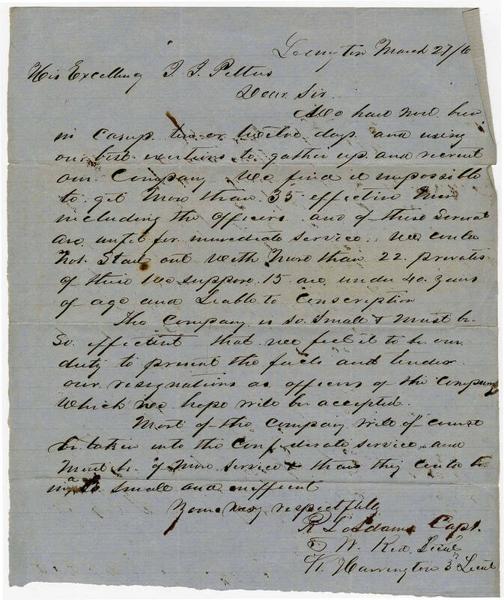 Lexington March 27/6
His Excellency J. J. Pettus
Dear Sir
We have now been
in Camp ten or twelve days and using
our best exertions to gather up and recruit
our Company. We find it impossible
to get more than 35 effective men
including the officers and of these several
are unfit for immediate service. We could
not start out with more than 22 privates
of these we suppose 15 are under 40 years
of age and liable to conscription
The Company is so small & must be
so efficient that we feel it to be our
duty to present the facts and tender
our resignations as officers of the company
which we hope will be accepted.
Most of the Company will of course
be taken into the Confederate service and
must be of more service than they could be
in a small and
Yours very respectfully
R Adams Capt.
W. Lieut
W. Harrington 3d Lieut